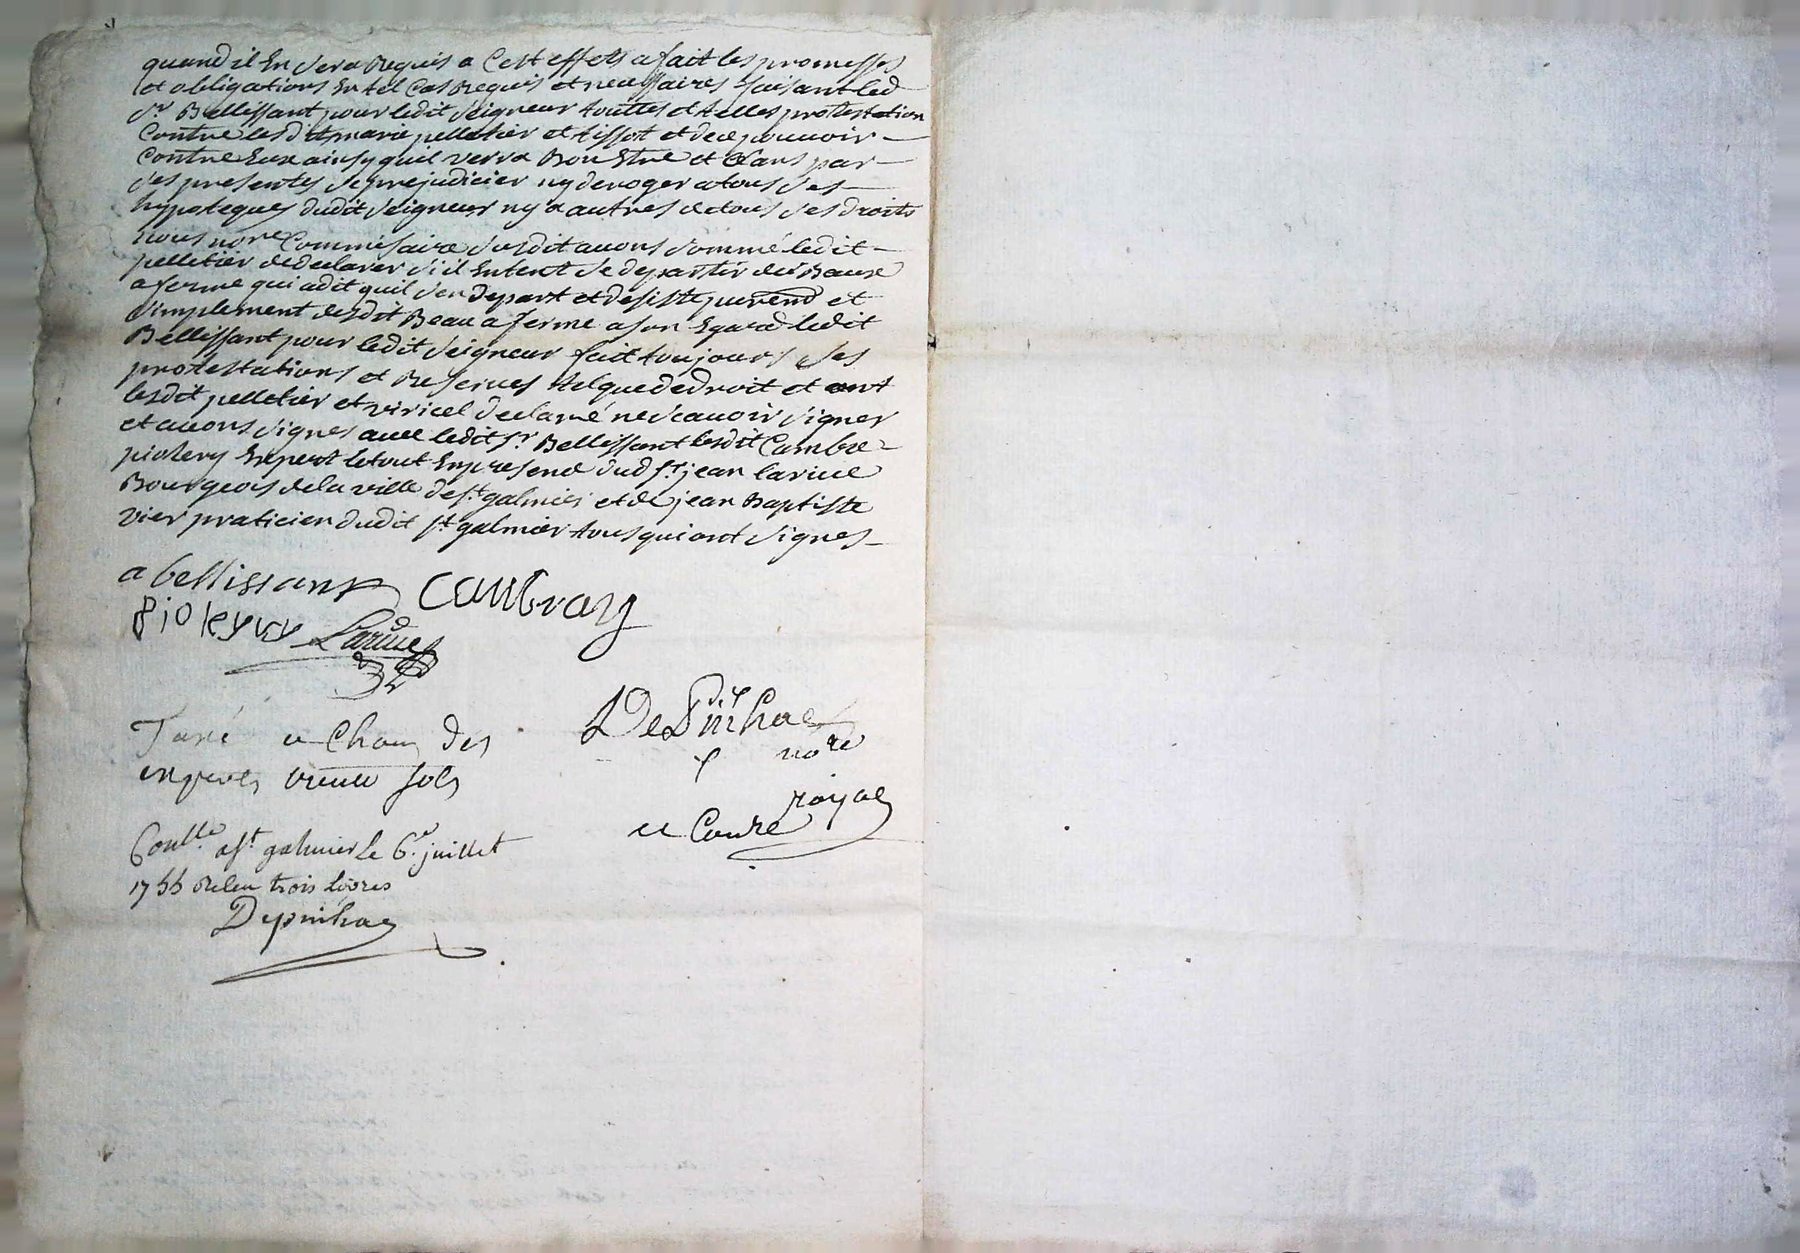 quand il En sera Requis a Cest effets a fait les promesses
et obligations En tel Cas Requis et necessaires faisant led
Sr Bellissant pour ledit Seigneur touttes et telles protestation
Contre lesdit marie pelletier et tissot et de ce pouvoir
Contre Eux ainsy quil verra Bon Etre et Sans par
ses presentes se prejudicier ny deroger a tous ses
hypoteques dudit Seigneur ny a autres de tous ses droits
nous nore Commissaire susdit avons sommé ledit
pelletier de declarer s'il Entent se departir des Baux
a ferme qui a dit quil sen depart et desiste purem̄ et
simplement desdit Beau a ferme a son Egard ledit
Bellissant pour ledit Seigneur fait toujours ses
protestations et Reserves tel que de Droit et ont
lesdit pelletier et viricel declaré ne scavoir signer
et avons signes avec ledit sr Bellissant lesdit Cambre
piolery Expert le tout En presence dud sr jean larive
Bourgeois de la ville de st galmier et de jean Baptiste
vier praticien dudit st galmier tous qui ont signes
a bellissant Cambray
pioleyry Larive
DeSpinhac
Taxé a Chaq des
nore
experts trente sols
royal
a Contre
Conlle a st galmier le 6e juillet
1755 Relev trois livres
Depinhac